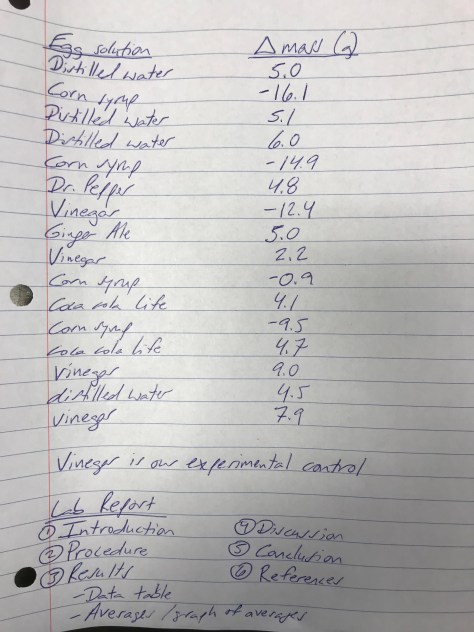 Egg solution Δ mass (g)
Distilled water 5.0
Corn syrup -16.1
Distilled water 5.1
Distilled water 6.0
Corn syrup -14.9
Dr. Pepper 4.8
Vinegar -12.4
Ginger Ale 5.0
Vinegar 2.2
Corn syrup -0.9
Coca cola life 4.1
Corn syrup -9.5
coca cola life 4.7
Vinegar 9.0
distilled water 4.5
vinegar 7.9
Vinegar is our experimental control
Lab Report
① Introduction ④ Discussion
② Procedure ⑤ Conclusion
③ Results ⑥ References
- Data table
- Averages / graph of averages